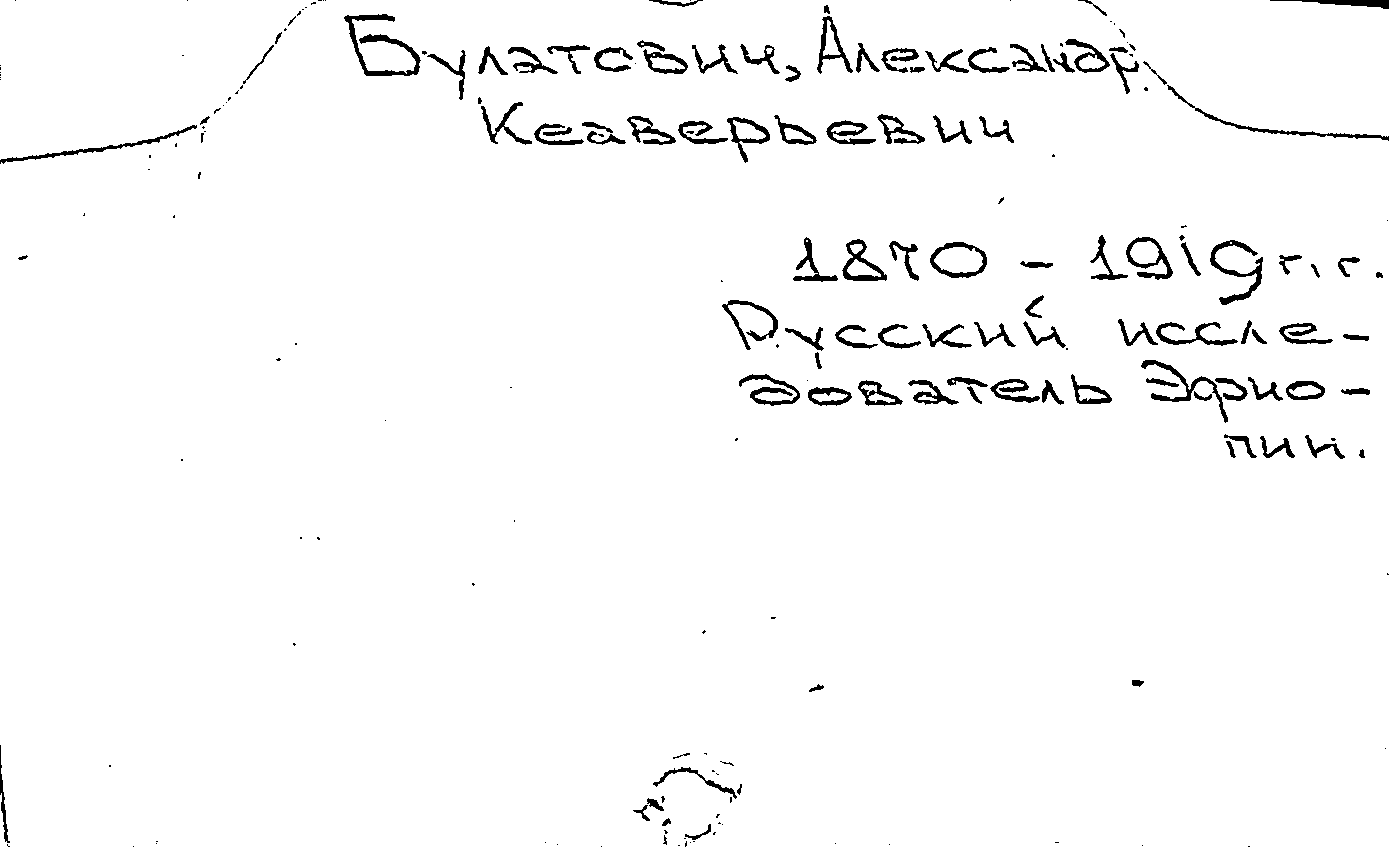 Булатович, Александр
Ксаверьевич
1870 - 1919 г.г.
Русский иссле-
дователь Эфио-
пии.